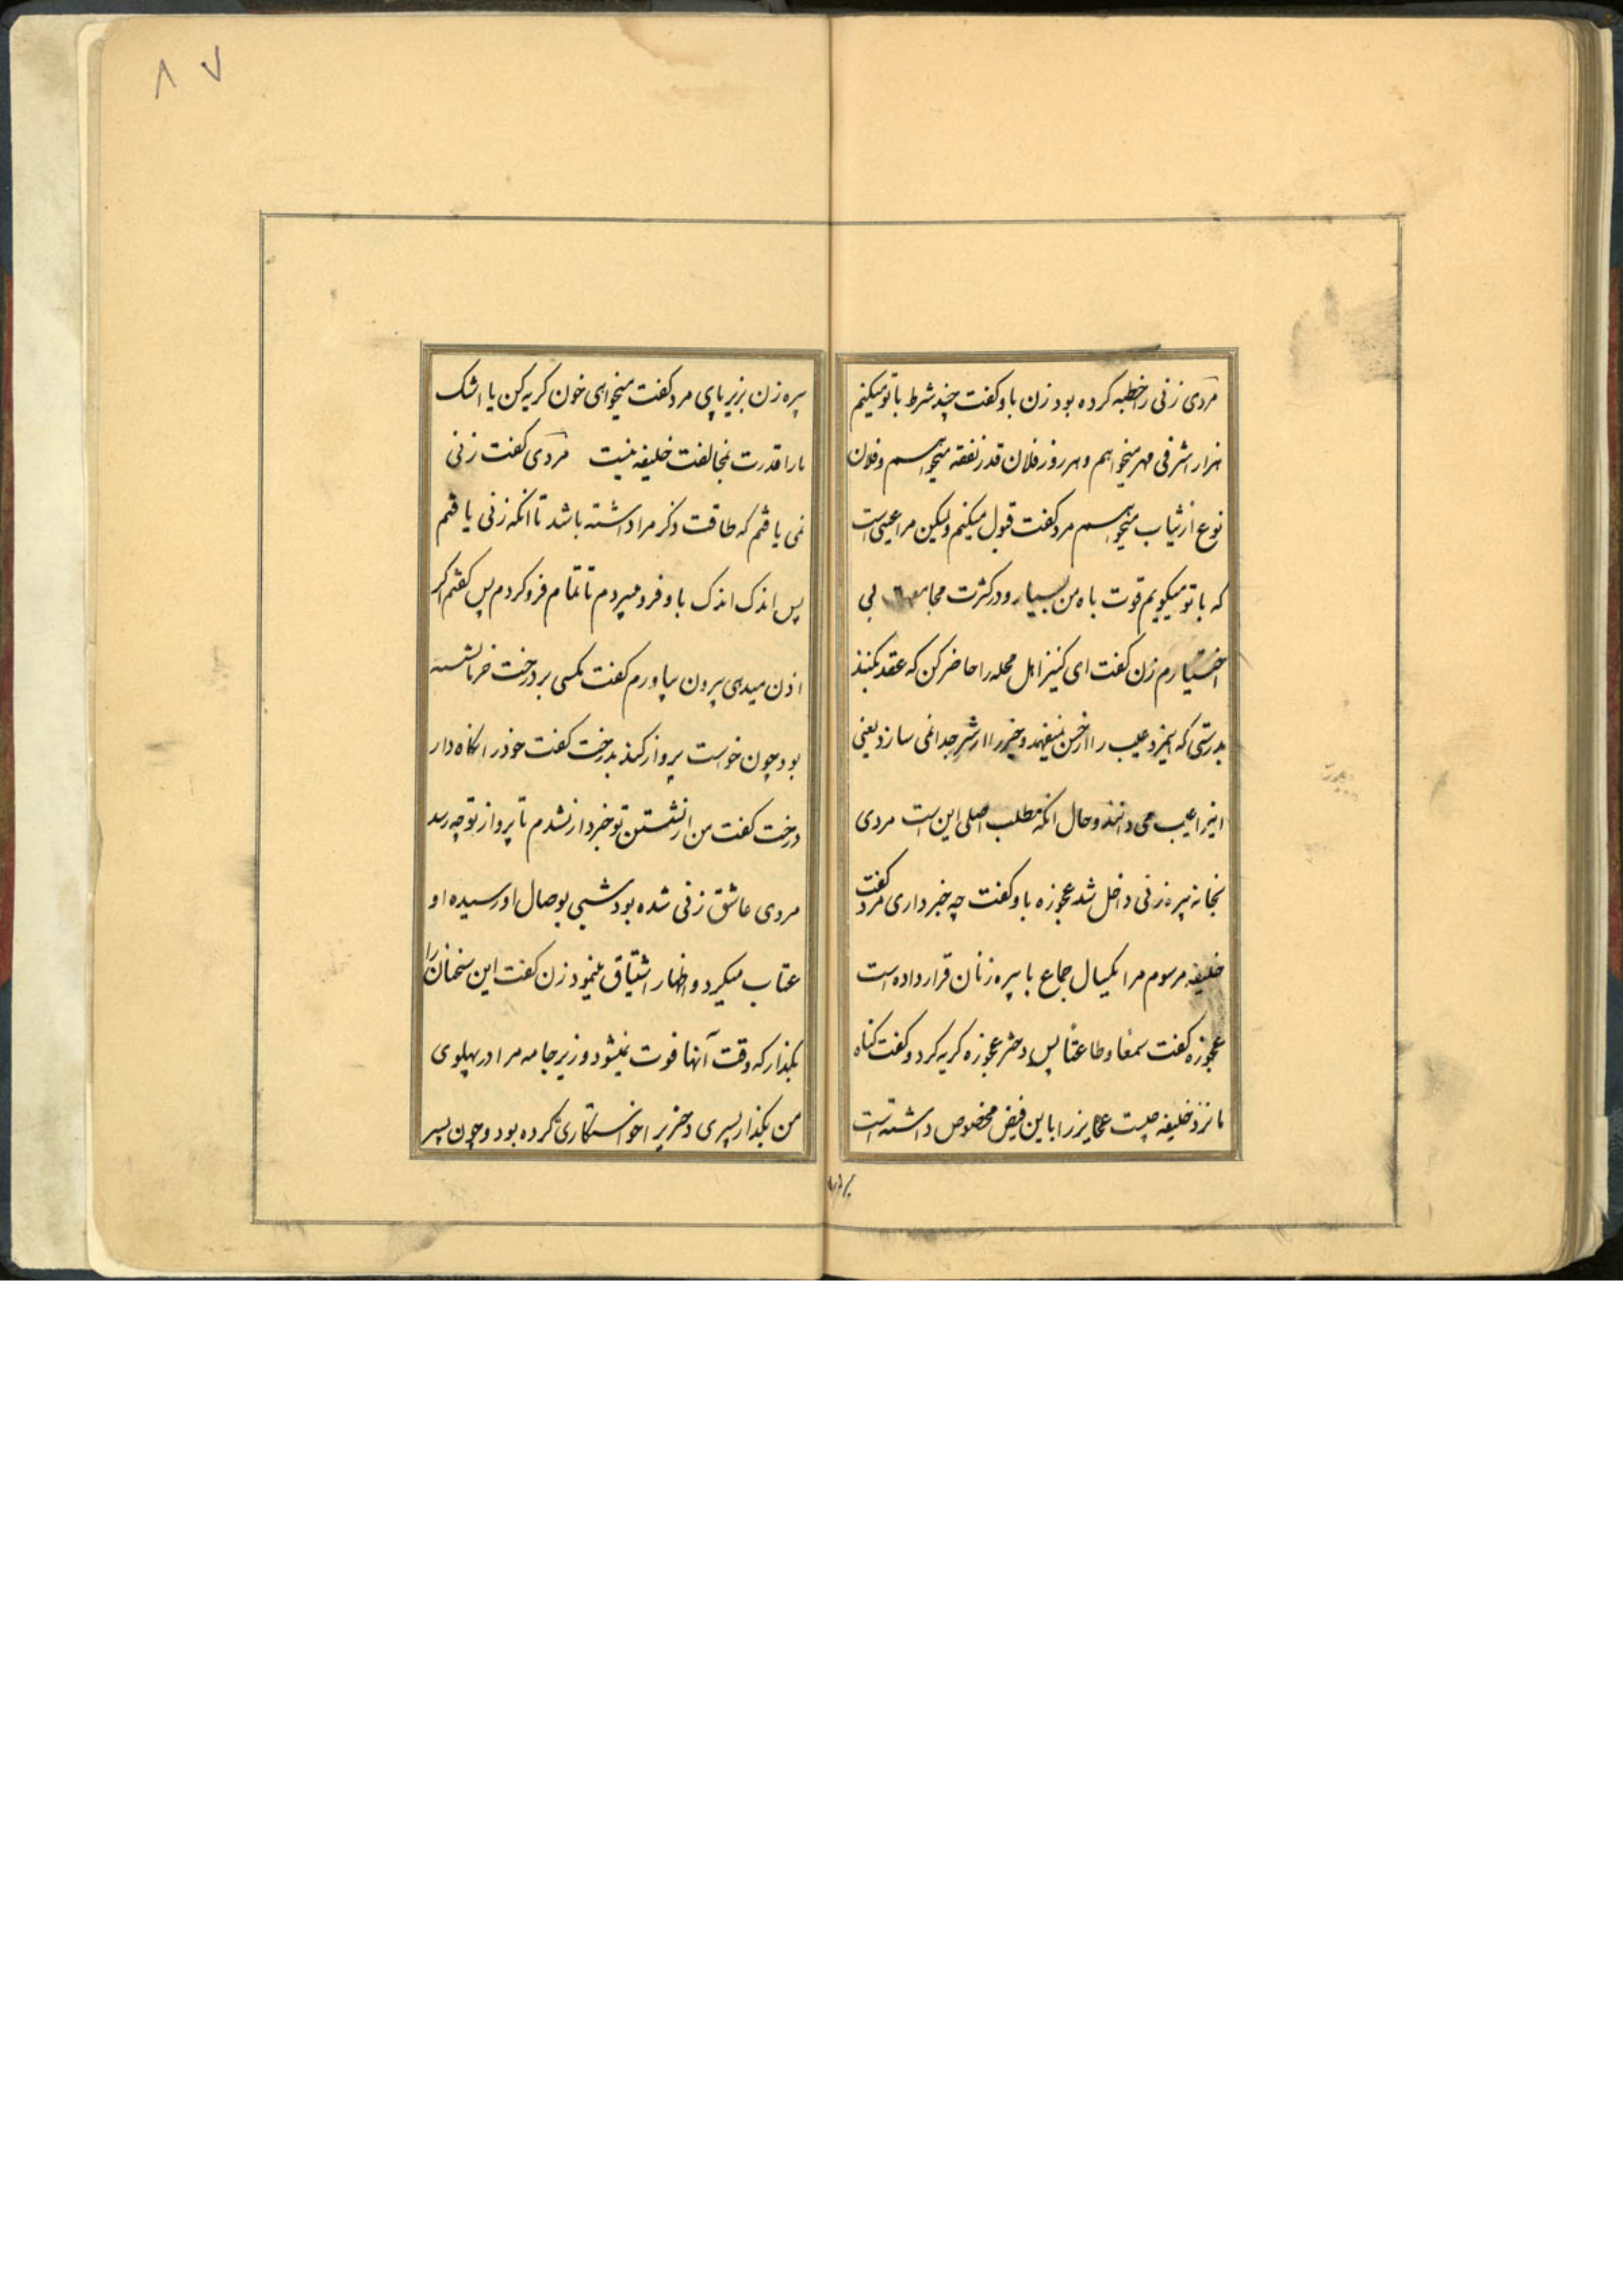 مردی زنی را خطبه کرده بود زن باو کفت چند شرط با تو میکنم
هزار اشرفی مهر میخواهم و هر روز فلان قدر نفقه میخواهم و فلان
نوع از ثیاب میخواهم مرد کفت قبول میکنم ولیکن مرا عیبی است
که با تو میکویم قوت باه من بسیار و در کثرت مجامعت بی
اختیارم زن کفت ای کنیز اهل محله را حاضر کن که عقد بکنند
بدرستی که اینمرد عیب را از حسن نمیفهمد و خیر را از شر جدا نمی سازد یعنی
اینرا عیب می دانند و حال انکه مطلب اصلی این است مردی
بخانه پیره زنی داخل شد عجوزه باو کفت چه خبر داری مرد کفت
خلیفه مرسوم مرا یکسال جماع با پیره زنان قرار داده است
عجوزه کفت سمعا و طاعتا پس دختر عجوزه کریه کرد و کفت کناه
ما نزد خلیفه چیست عجایز را باین فیض مخصوص داشته است
پیره زن بزیر پای مرد کفت میخواهی خون کریه کن یا اشک
ما را قدرت بمخالفت خلیفه نیست مردی کفت زنی
نمی یافتم که طاقت ذکر مرا داشته باشد تا انکه زنی یافتم
پس اندک اندک باو فرو میبردم تا تمام فرو کردم پس کفتم اکر
اذن میدهی بیرون بیاورم کفت مکسی بر درخت خرما نشسته
بود چون خواست پرواز کند بدرخت کفت خود را نکاه دار
درخت کفت من از نشستن تو خبردار نشدم تا پرواز تو چه رسد
مردی عاشق زنی شده بود شبی بوصال او رسیده او
عتاب میکرد و اظهار اشتیاق مینمود زن کفت این سخنان را
بکذار که وقت آنها فوت نمیشود و زیر جامه مرا در پهلوی
من بکذار پسری دختریرا خواستکاری کرده بود و چون پسر
۸۷